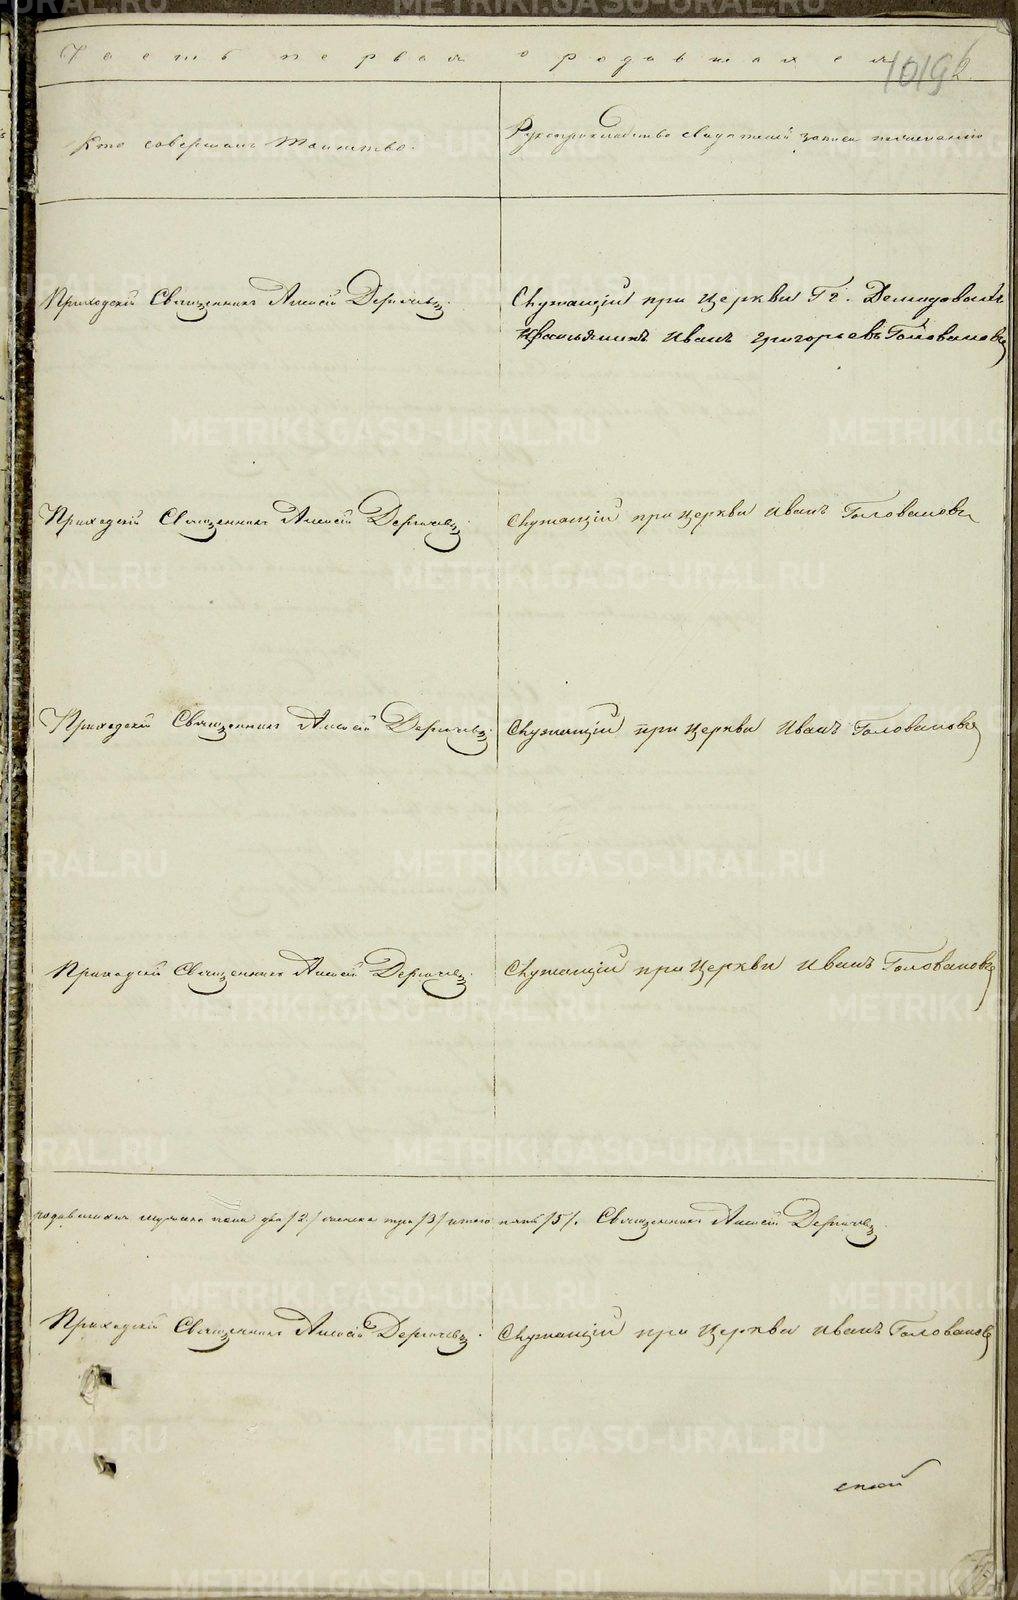 Часть первая о родившихся
1019
Кто совершалъ таинство.
Рукоприкладство свидетелей записи по желанію
Приходскій Священникъ Алексій Дерягинъ.
Служащій при церкви Гг. Демидовыхъ
Иванъ Григорьевъ Головановъ
Приходскій Священникъ Алексій Дерягинъ
Служащій при церкви Иванъ Головановъ
Приходскій Священникъ Алексій Дерягинъ
Служащій при церкви Иванъ Головановъ
Приходскій Священникъ Алексій Дерягинъ.
Служащій при церкви Иванъ Головановъ
родившихся мужеска пола два /2/ женска три /3/ итого пять /5/. Священникъ Алексій Дерягинъ.
Приходскій Священникъ Алексій Дерягинъ.
Служащій при церкви Иванъ Головановъ
METRIKI.GASO-URAL.RU